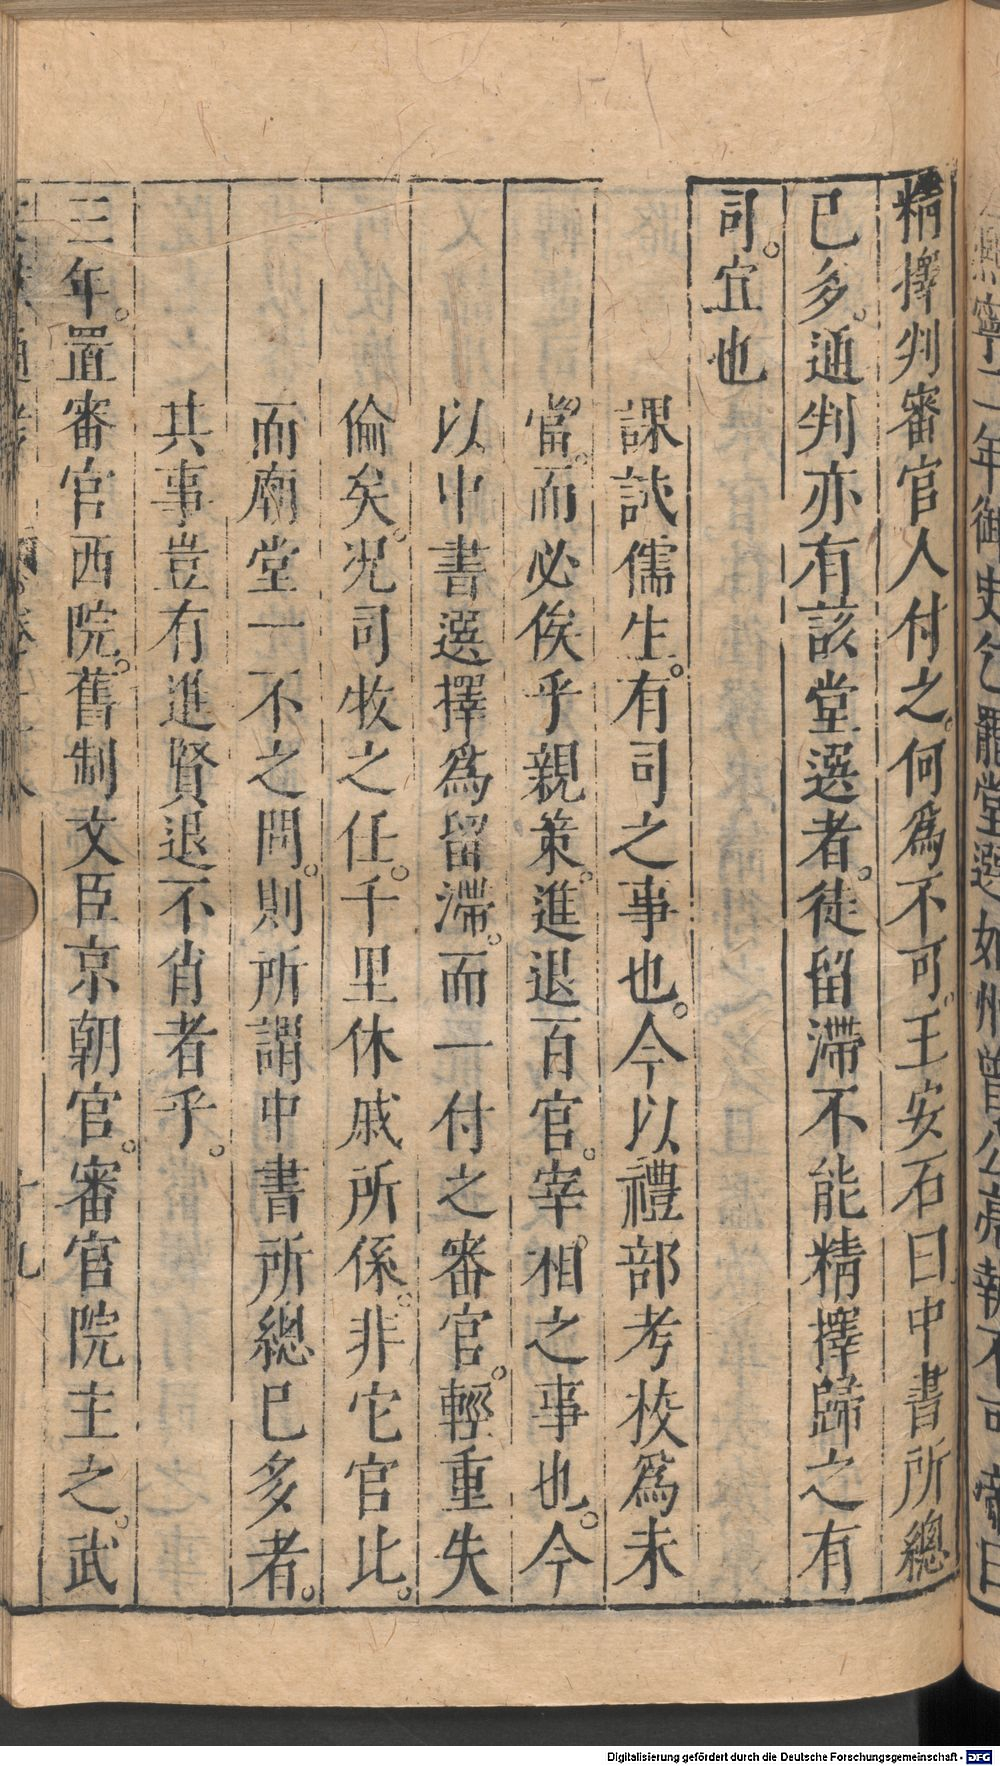 熙寧二年御史乞罷堂選知州曾公亮執不可帝曰
精擇判審官人付之何爲不可王安石曰中書所總
已多通判亦有該堂選者徒留滯不能精擇歸之有
司宜也
課試儒生有司之事也今以禮部考校爲未
當而必俟乎親策進退百官宰相之事也今
以中書選擇爲留滯而一付之審官輕重失
倫矣况司牧之任千里休戚所係非它官比
而廟堂一不之問則所謂中書所總已多者
共事豈有進賢退不肖者乎
三年置審官西院舊制文臣京朝官審官院主之武
十九
Digitalisierung gefördert durch die Deutsche Forschungsgemeinschaft - DFG